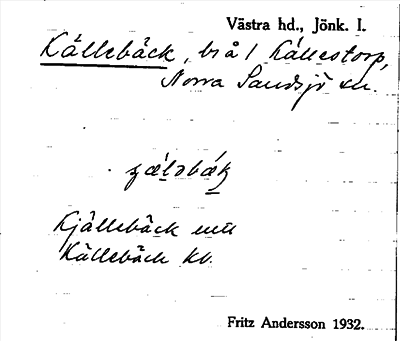 Västra hd., Jönk. l.
Källebäck, bi å i Källestorp,
Norra Sandsjö sn.
Kjällebäck
Källebäck kb.
Fritz Andersson 1932.